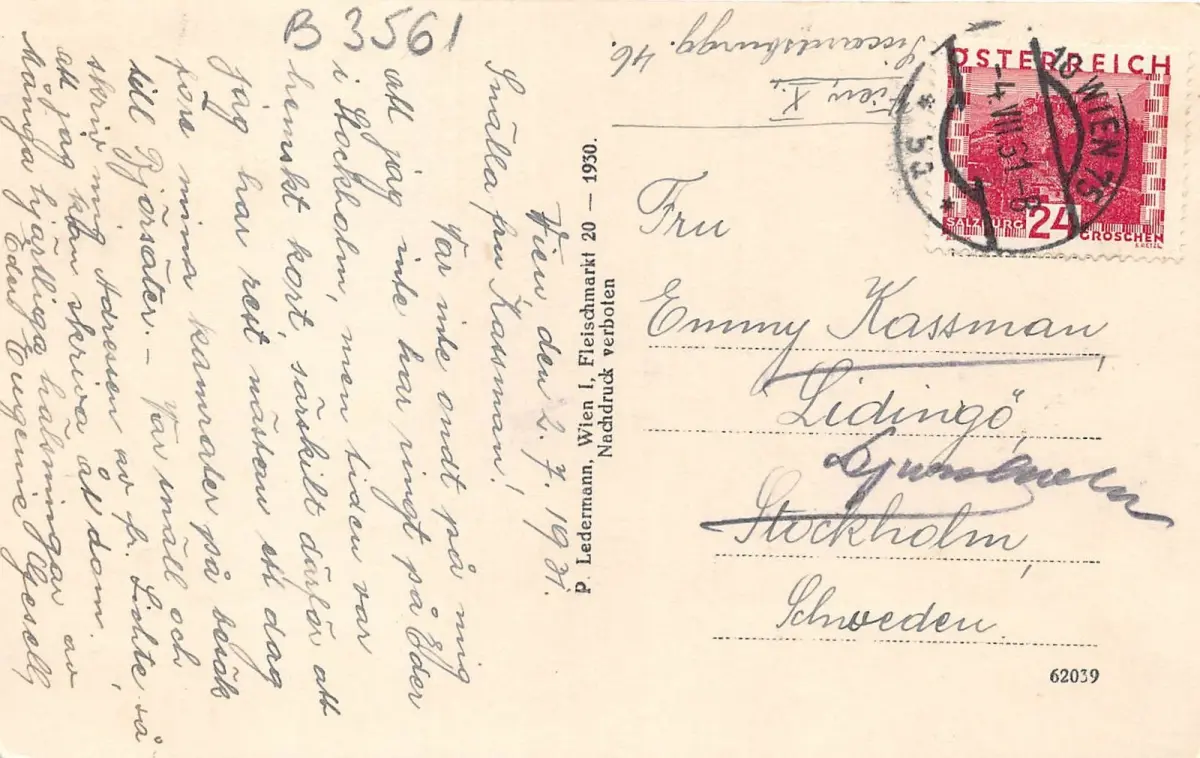 B 3561
Wien, den 2. 7. 1931.
Snälla fru Kassman!
Var inte ondt på mig
att jag inte har ringt på Eder
i Stockholm, men tiden var
hemskt kort, särskilt därför att
jag har rest nästan ett dag
före mina kamrater på besök
till Björsäter. – Var snäll och
skriv mig Adressen av fr. Lichte, så
att jag kan skriva åt dom.
Många hjärtliga hälsningar av
Eder Eugenie
P. Ledermann, Wien I, Fleischmarkt 20 — 1930.
Nachdruck verboten
46.
Wien X,
ÖSTERREICH
SALZBURG 24 GROSCHEN
10 WIEN 75
-4.VII.31-8
* 5a *
Fru
Emmy Kassman,
Lidingö,
Djursholm
Stockholm,
Schweden
62039